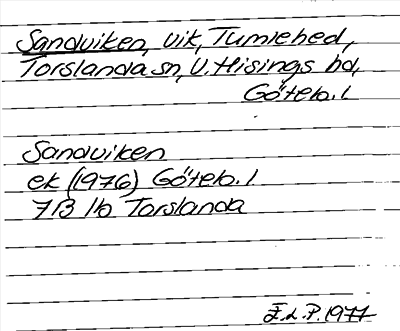 Sandviken, vik, Tumlehed,
Torslanda sn, V. Hisings hd,
Göteb. l
Sandviken
ek (1976) Göteb. l
7B 1b Torslanda
1977